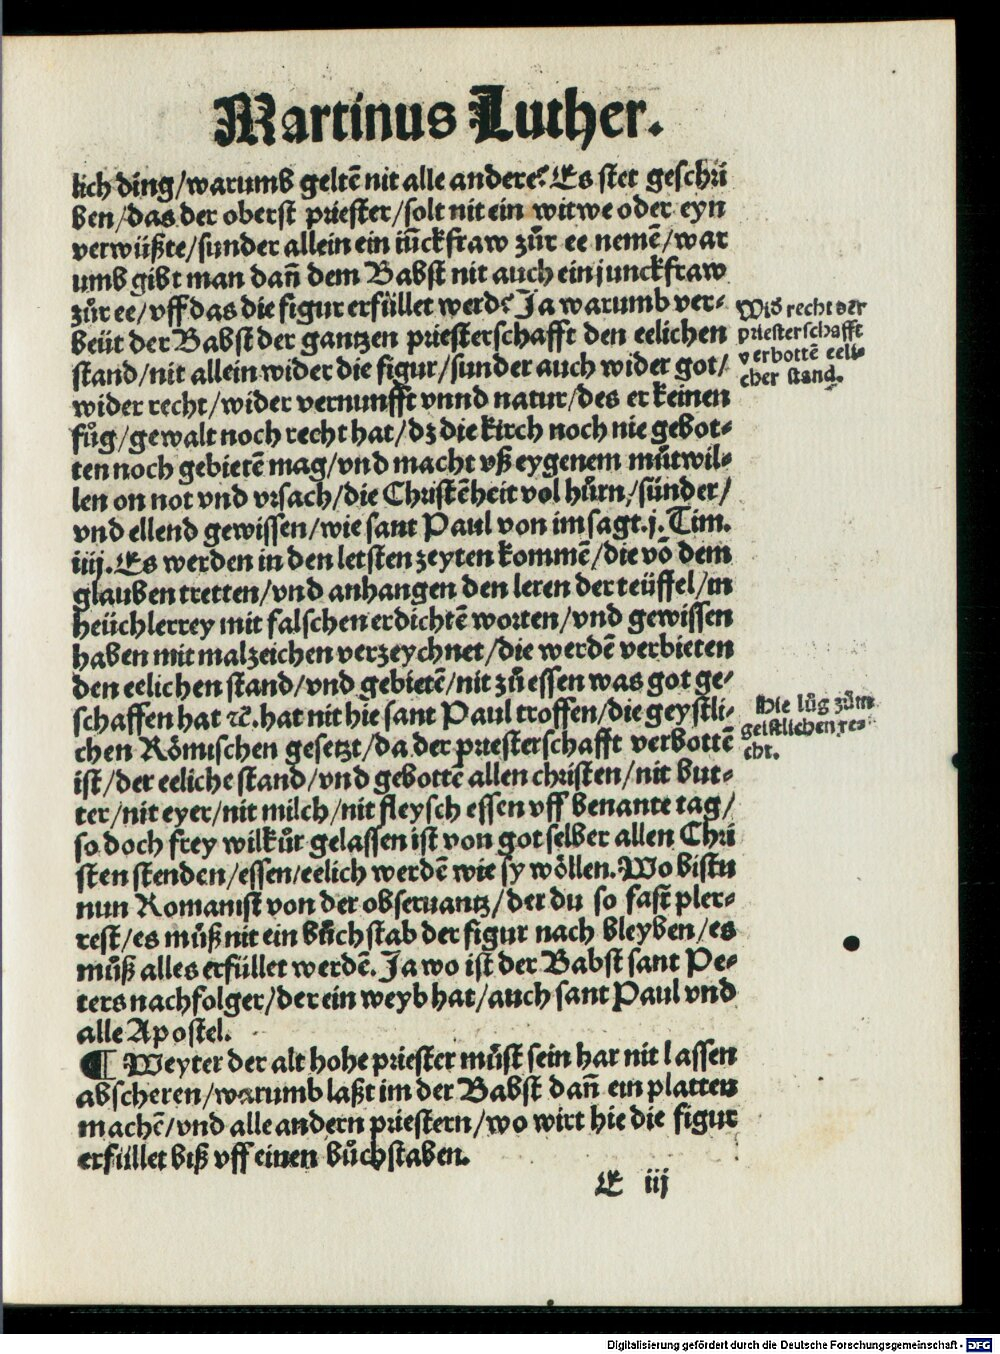 Martinus Luther.
lich ding/warumb geltē nit alle andere? Es stet geschri
ben/das der oberst priester/solt nit ein witwe oder eyn
verwüßte/sunder allein ein iūckfraw zůr ee nemē/war
umb gibt man dañ dem Babst nit auch ein junckfraw
zůr ee/vff das die figur erfüllet werd? Ja warumb ver-
beüt der Babst der gantzen priesterschafft den eelichen
stand/nit allein wider die figur/sunder auch wider got/
wider recht/wider vernunfft vnnd natur/des er keinen
fůg/gewalt noch recht hat/dz die kirch noch nie gebot-
ten noch gebietē mag/vnd macht vß eygenem můtwil-
len on not vnd vrsach/die Christēheit vol hůrn/sünder/
vnd ellend gewissen/wie sant Paul von im sagt.j.Tim.
iiij.Es werden in den letsten zeyten kommē/die vō dem
glauben tretten/vnd anhangen den leren der teüffel/in
heüchlerrey mit falschen erdichtē worten/vnd gewissen
haben mit malzeichen verzeychnet/die werdē verbieten
den eelichen stand/vnd gebietē/nit zů essen was got ge-
schaffen hat ꝛc̄.hat nit hie sant Paul troffen/die geystli-
chen Römischen gesetzt/da der priesterschafft verbottē
ist/der eeliche stand/vnd gebottē allen christen/nit but-
ter/nit eyer/nit milch/nit fleysch essen vff benante tag/
so doch frey wilkůr gelassen ist von got selber allen Chri
sten stenden/essen/eelich werdē wie sy wöllen.Wo bistu
nun Romanist von der obseruantz/der du so fast pler-
rest/es můß nit ein bůchstab der figur nach bleyben/es
můß alles erfüllet werdē.Ja wo ist der Babst sant Pe-
ters nachfolger/der ein weyb hat/auch sant Paul vnd
alle Apostel.
¶ Weyter der alt hohe priester můst sein har nit lassen
abscheren/warumb laßt im der Babst dañ ein platten
machē/vnd alle andern priestern/wo wirt hie die figur
erfüllet biß vff einen bůchstaben.
E iij
Wid recht der
priesterschafft
verbottē eeli-
cher stand.
Hie lůg zům
geistlichen re-
cht.
Digitalisierung gefördert durch die Deutsche Forschungsgemeinschaft - DFG